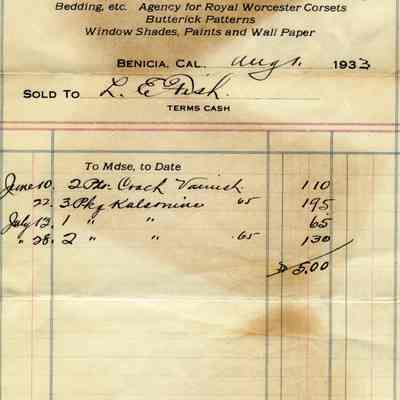 Bedding, etc. Agency for Royal Worcester Corsets
Butterick Patterns
Window Shades, Paints and Wall Paper
BENICIA, CAL. Aug 1. 1933
SOLD TO L. E. Fish.
TERMS CASH
To Mdse, to Date
June 10. 2 Coach Varnish 110
22. 3 Pkg Kalsomine 65 195
July 13. 1 " " 65
" 28. 2 " " 65 130
$5.00